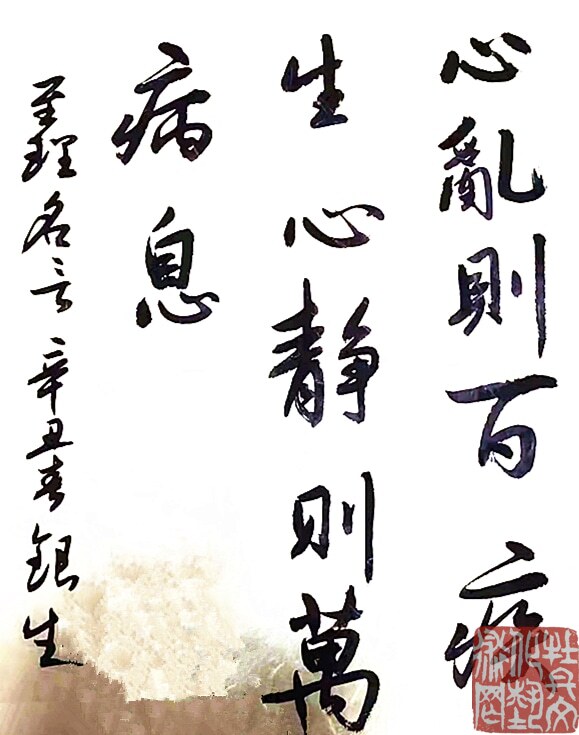 心亂則百病
生心静則萬
病息
至理名言辛丑春銀生